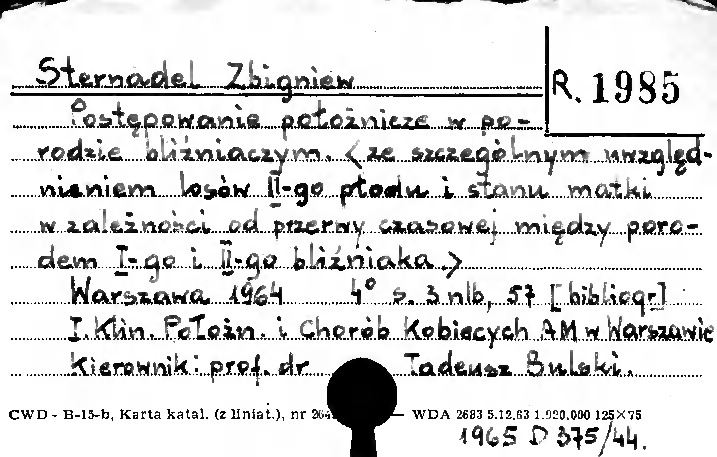 Sternadel Zbigniew
R. 1985
Postępowanie położnicze w po-
rodzie bliźniaczym. <ze szczególnym uwzględ-
nieniem losów II-go płodu i stanu matki
w zależności od przerwy czasowej między poro-
dem I-go i II-go bliźniaka.>
Warszawa 1964 4° s. 3 nlb, 57 [bibliogr]
I. Klin. Położn. i Chorób Kobiecych AM w Warszawie
Kierownik: prof. dr Tadeusz Bulski.
CWD - B-15-b, Karta katal. (z liniat.), nr 264 — WDA 2683 5.12.63 1.920.000 125×75
1965 D 375/44.